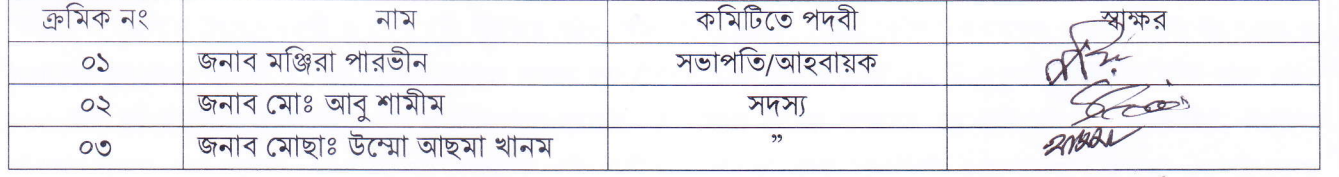 ক্রমিক নং নাম কমিটিতে পদবী স্বাক্ষর
০১ জনাব মঞ্জিরা পারভীন সভাপতি/আহবায়ক
০২ জনাব মোঃ আবু শামীম সদস্য
০৩ জনাব মোছাঃ উম্মো আছমা খানম ”